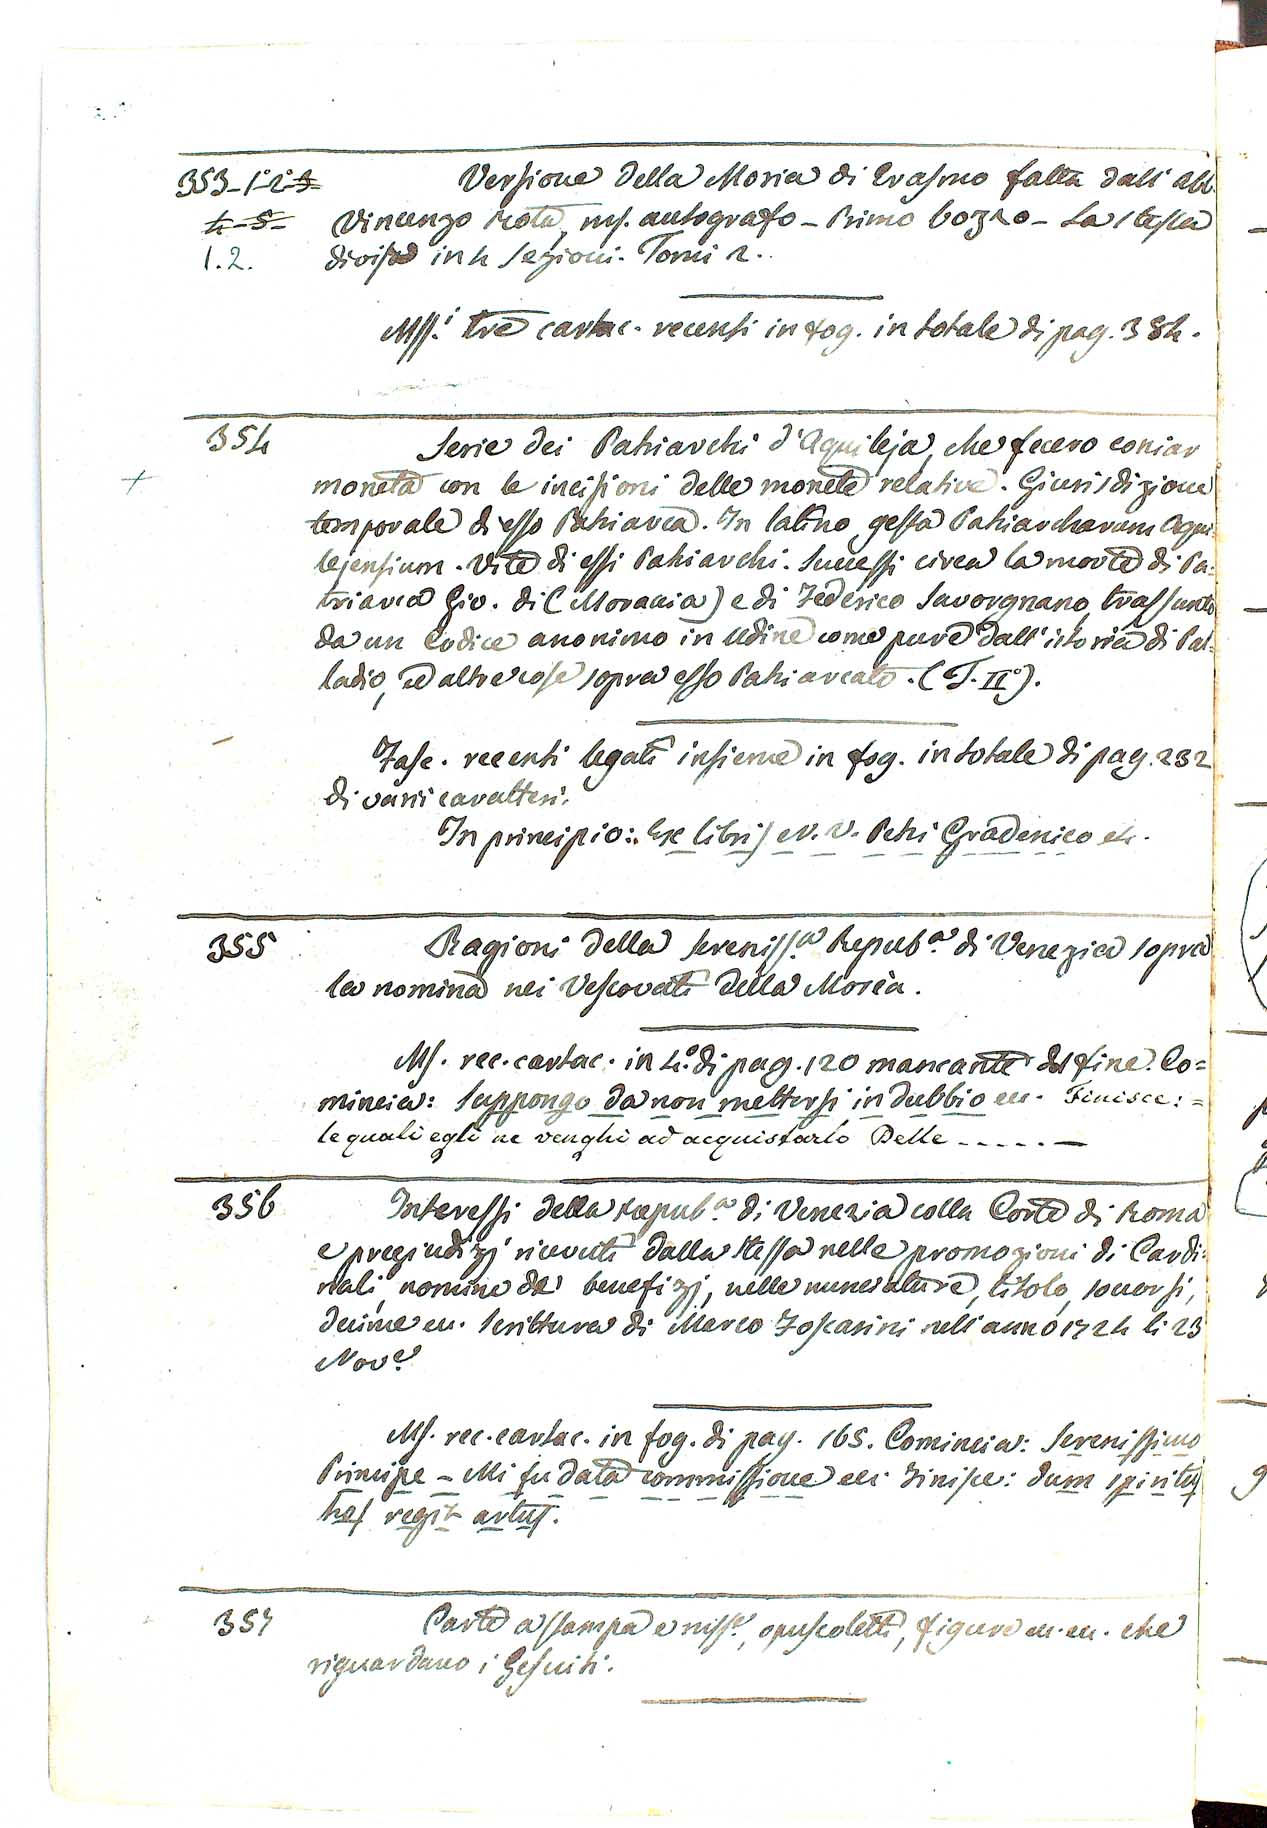 353-1-2-3
4-5-
1.2.
Versione della Moria di Erasmo fatta dall'abb.
Vincenzo Rota, ms. autografo - Primo bozzo - La stessa
divisa in 4 Sezioni. Tomi 2.
Mss.i tre cartac. recenti in fog. in totale di pag. 384.
354
Serie dei Patriarchi d'Aquileja, che fecero coniar
moneta con le incisioni delle monete relative. Giurisdizione
temporale di esso Patriarca. In latino gesta Patriarcharum Aqui
lejensium. Vite di essi Patriarchi. Successi circa la morte di Pa=
triarca Gio. di (Moravia) e di Federico Savorgnano, trassunto
da un Codice anonimo in Udine come pure dall'istoria di Pal=
ladio, ed altre cose sopra esso Patriarcato. (T. II°).
Fasc. recenti legati insieme in fog. in totale di pag. 232
di varii caratteri.
In principio: Ex libris N. V. Petri Gradenico etc.
355
Ragioni della Sereniss.a Repub.a di Venezia sopra
la nomina nei Vescovati della Morèa.
Ms. rec. cartac. in 4.° di pag. 120 mancante del fine. Co=
mincia: Suppongo da non mettersi in dubbio ec. Finisce: =
le quali egli ne venghi ad acquistarlo Delle - - - - - -
356
Interessi della Repub.a di Venezia colla Corte di Roma
e pregiudizj ricevuti dalla stessa nelle promozioni di Cardi=
nali, nomine de benefizj, nelle nunciature, titolo, soccorsi,
decime ec. Scrittura di Marco Foscarini nell'anno 1724 li 23
Nov.e
Ms. rec. cartac. in fog. di pag. 165. Comincia: Serenissimo
Principe - Mi fu data commissione ec: Finisce: dum spiritus
hos regit artus.
357
Carte a stampa e mss.e, opuscoletti, figure ec. ec. che
riguardano i Gesuiti.